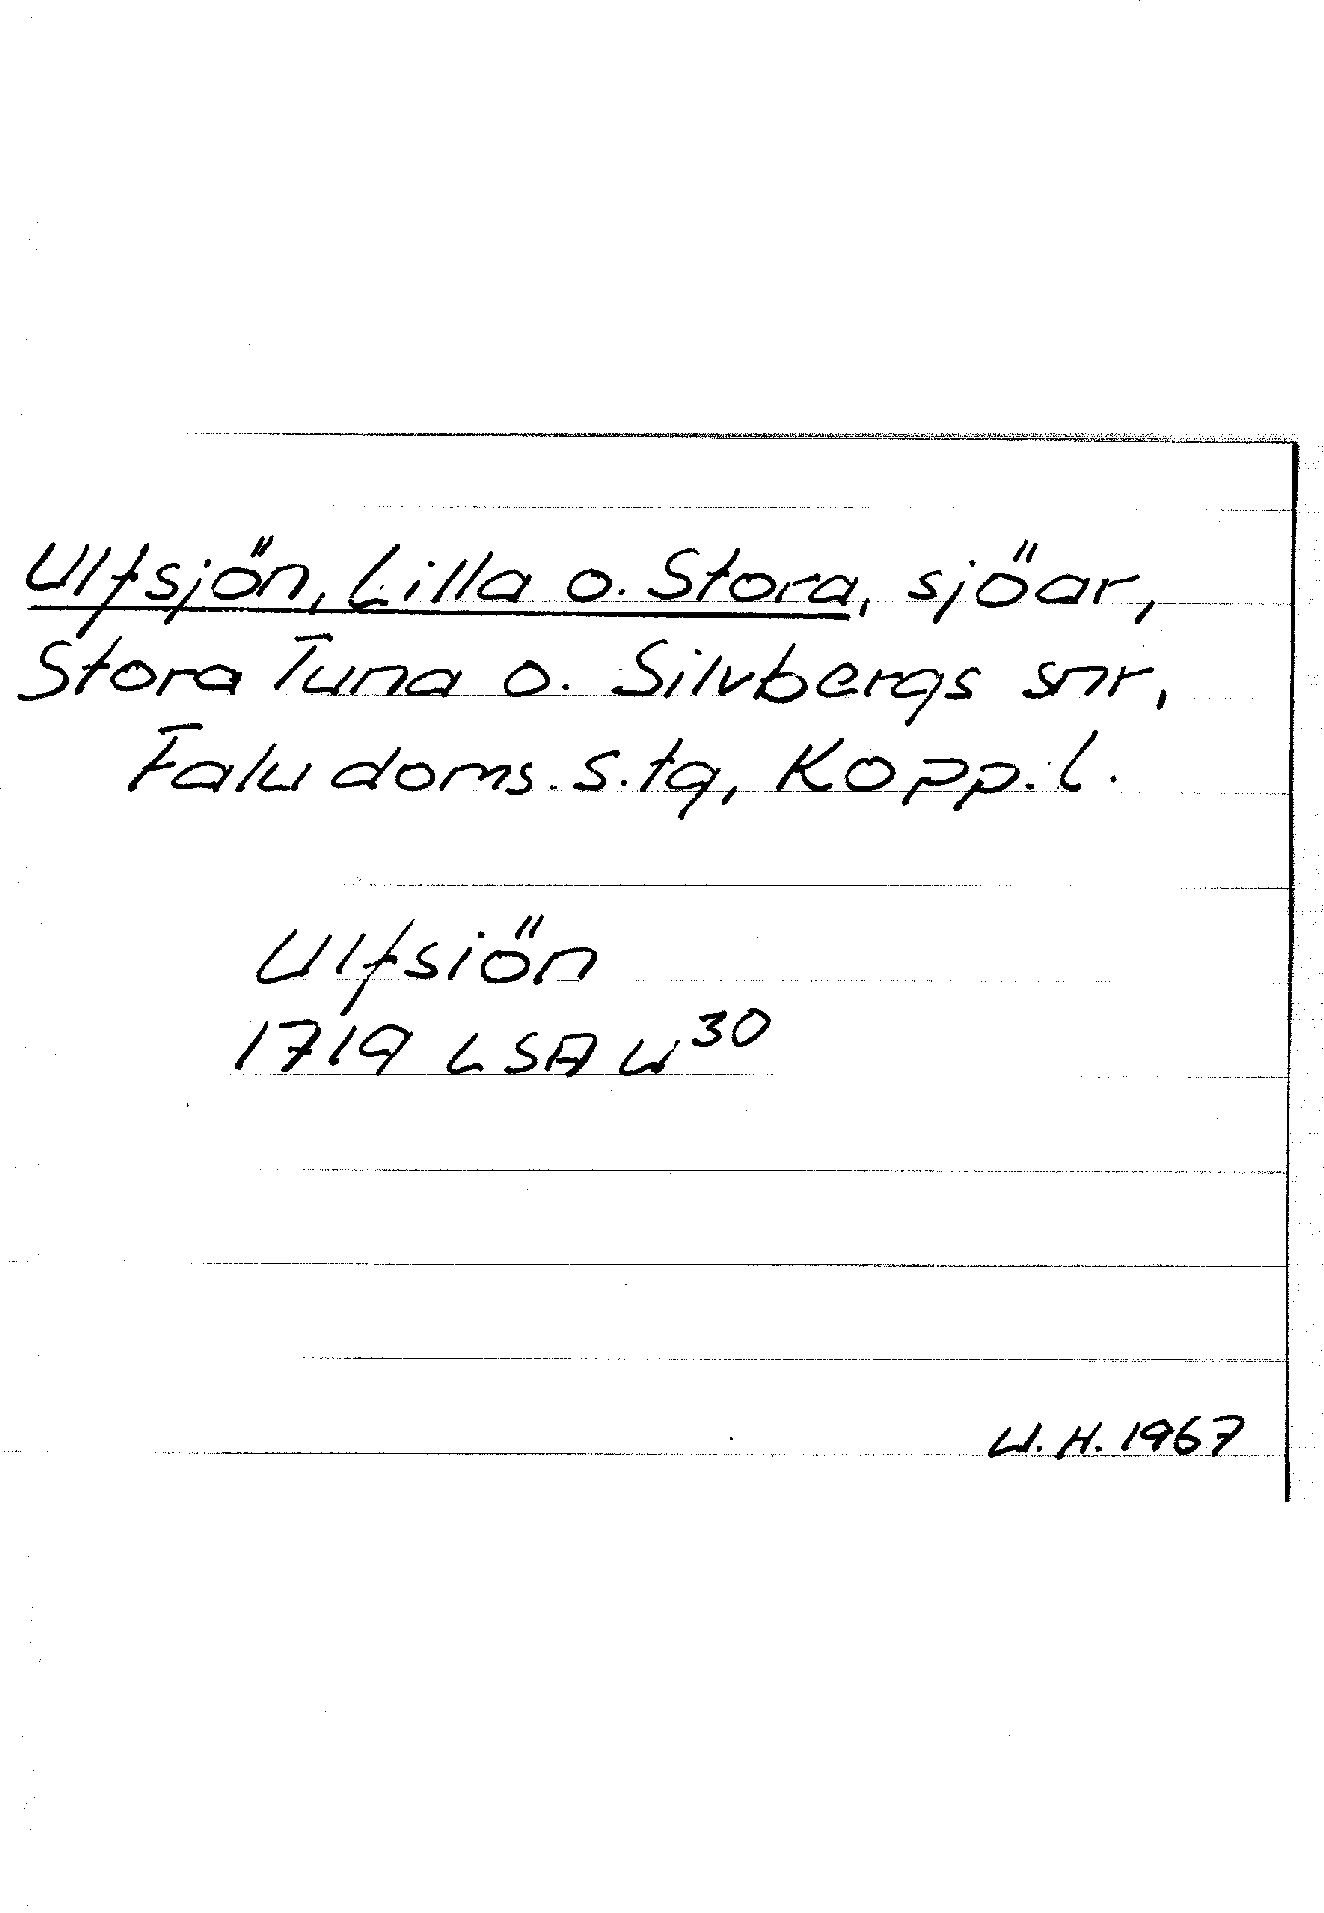 Ulfsjön, Lilla o. Stora, sjöar,
Stora Tuna o. Silvbergs snr,
Falu doms. s. tg, Kopp. l.
Ulfsiön
1719 LSA W30
W. H. 1967